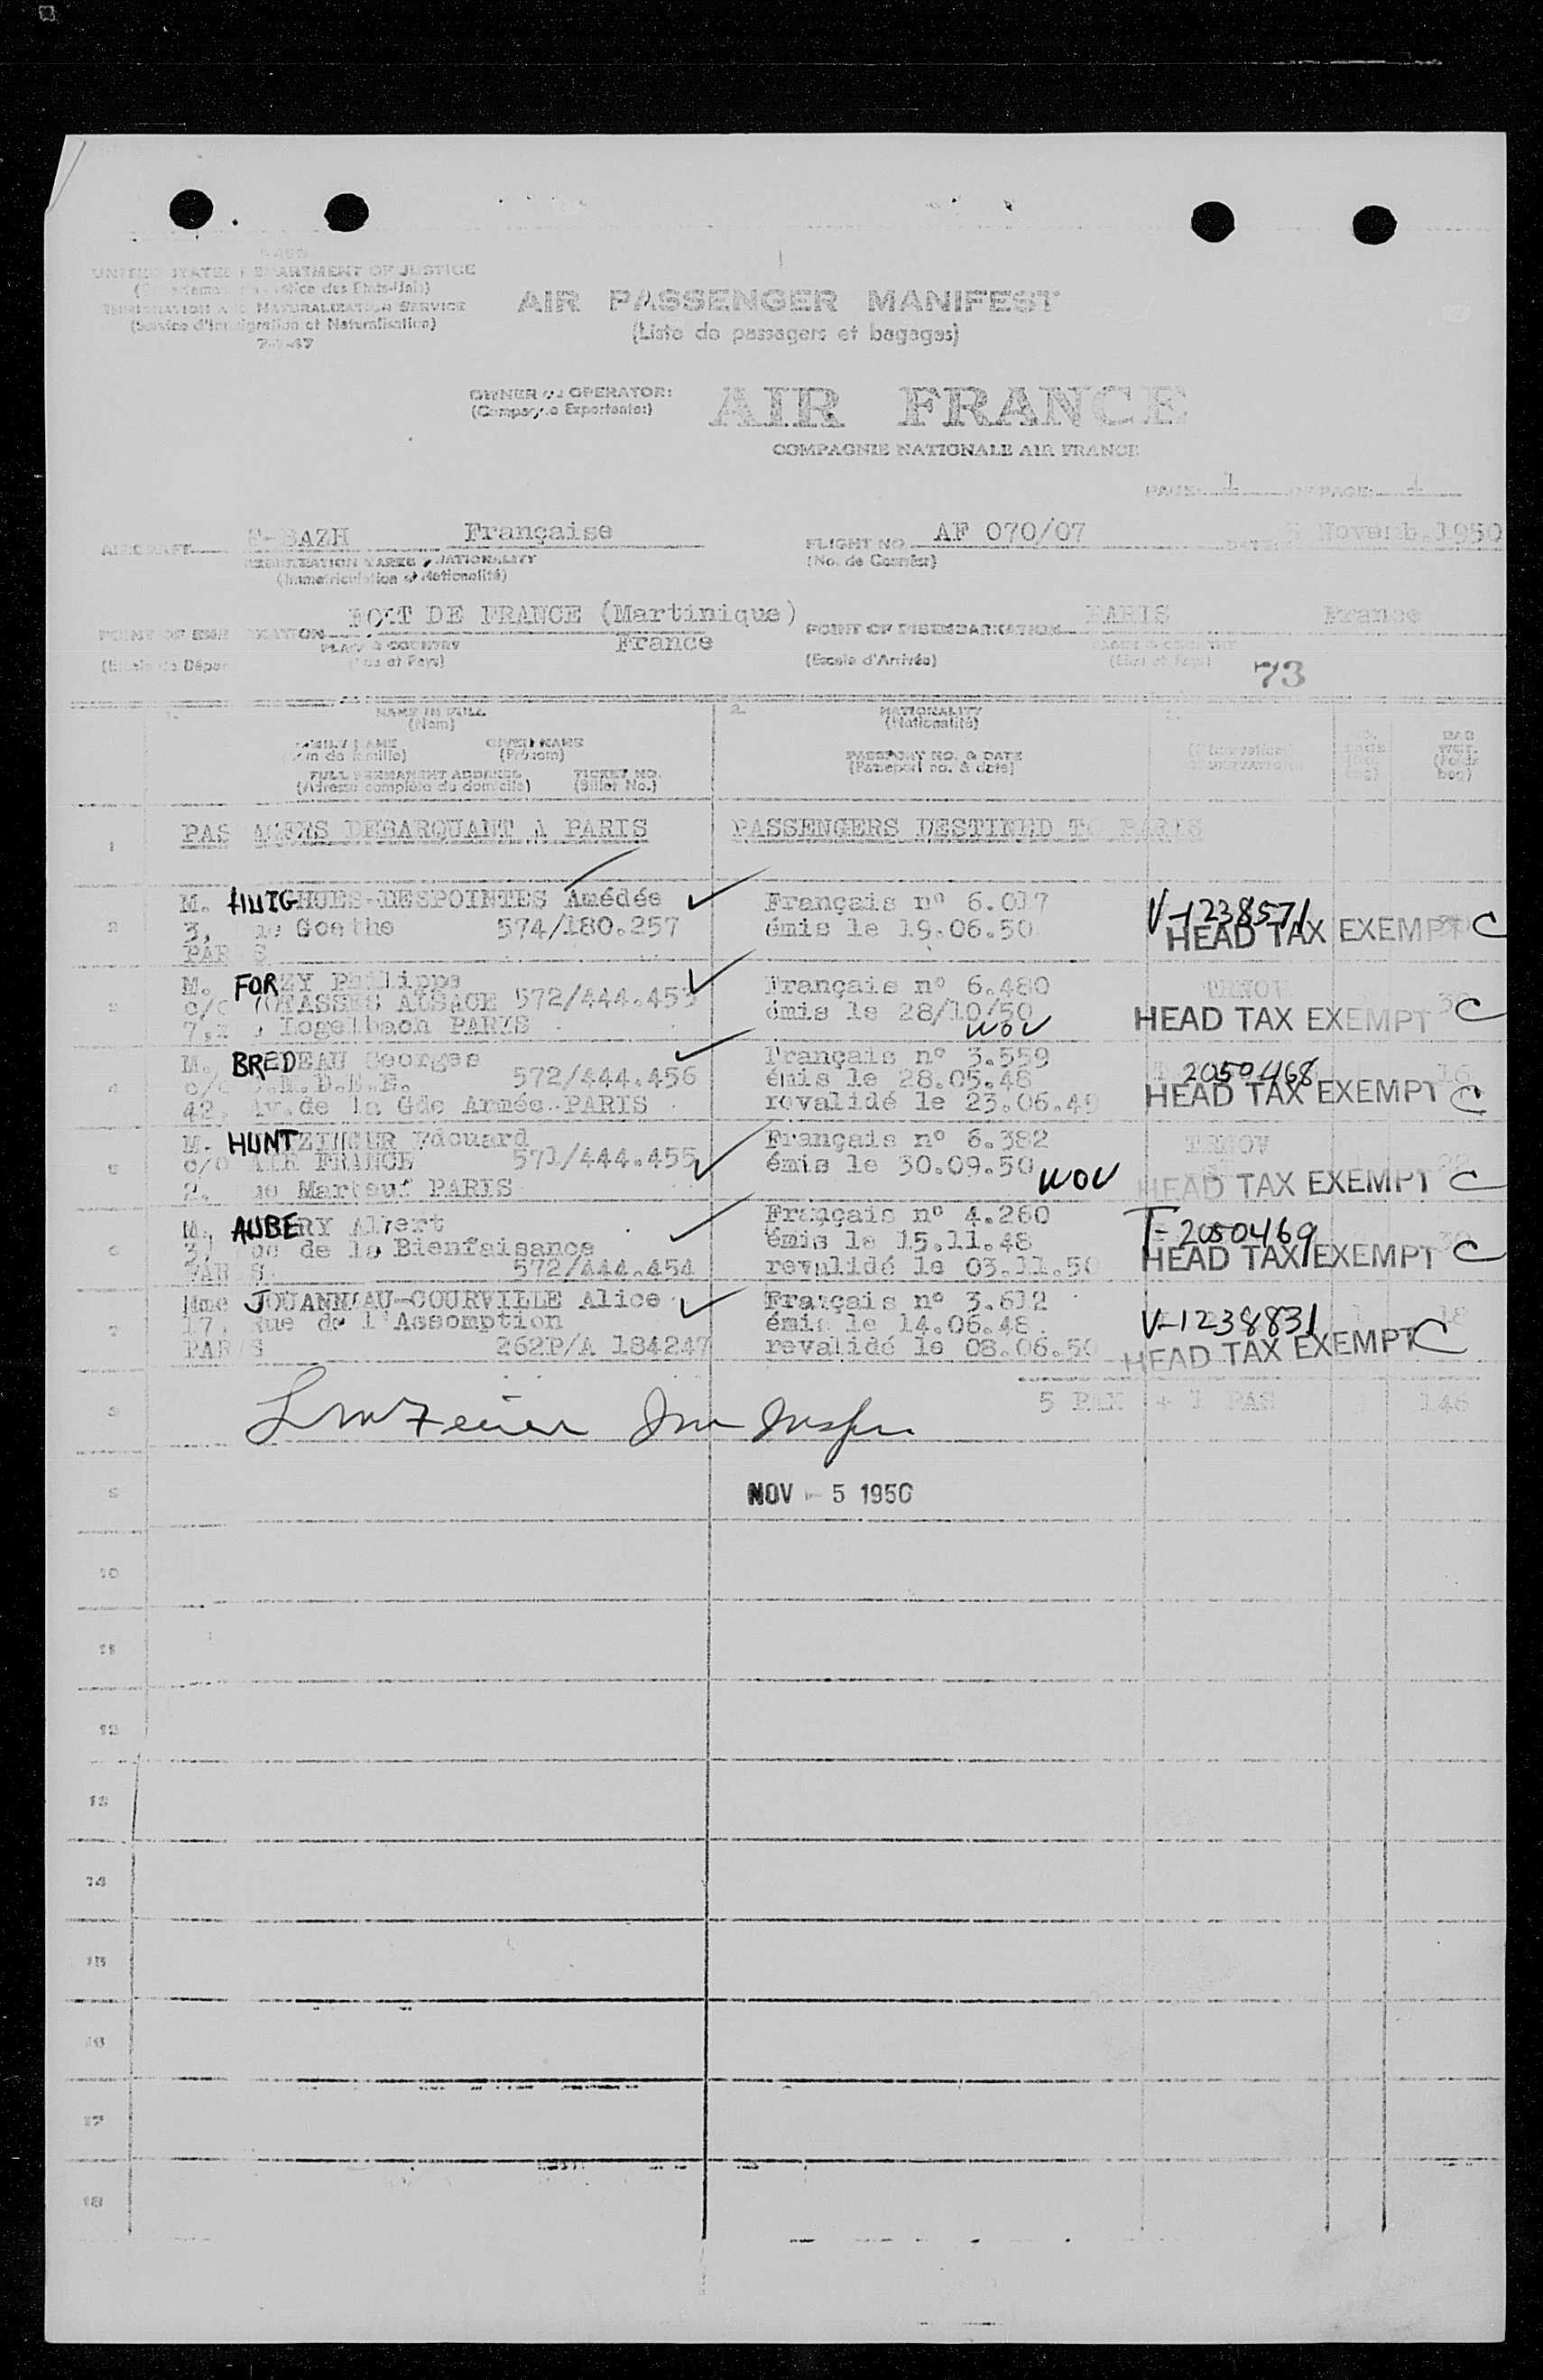 UNITED STATES DEPARTMENT OF JUSTICE
IMMIGRATION AND NATURALIZATION SERVICE
(Service d'Immigration et Naturalisation)
7-1-47
AIR PASSENGER MANIFEST
(Liste de passagers et bagages)
OWNER OR OPERATOR: AIR FRANCE
COMPAGNIE NATIONALE AIR FRANCE
PAGE 1 OF PAGE 1
AIRCRAFT F-BAZH Française FLIGHT NO. AF 070/07 DATE 5 Novemb.1950
REGISTRATION MARKS & NATIONALITY (No. de Courrier)
(Immatriculation et Nationalité)
POINT OF EMBARKATION FORT DE FRANCE (Martinique) France POINT OF DISEMBARKATION PARIS France
PLACE & COUNTRY
(Escale d'Arrivée)
73
1. NAME IN FULL 2. NATIONALITY
(Nom) (Nationalité)
FAMILY NAME GIVEN NAME PASSPORT NO. & DATE
(Nom de famille) (Prénom) (Passeport no. & date)
FULL PERMANENT ADDRESS TICKET NO.
(Adresse complète du domicile) (Billet No.)
1 PASSAGERS DEBARQUANT A PARIS PASSENGERS DESTINED TO PARIS
M. HUIGHUES-DESPOINTES Amédée Français nº 6.017 V-1238571
2 3, Goethe 574/180.257 émis le 19.06.50 HEAD TAX EXEMPT C
PARIS
M. FORZY Philippe Français nº 6.480
3 c/o POTASSES ALSACE 572/444.453 émis le 28/10/50 HEAD TAX EXEMPT C
7, Logelbach PARIS WOV
M. BREDEAU Georges Français nº 3.559 2050468
4 572/444.456 émis le 28.05.48 HEAD TAX EXEMPT C
42, Av.de la Gde Armée PARIS revalidé le 23.06.49
M. HUNTZINGER Edouard Français nº 6.382
5 c/o AIR FRANCE 571/444.455 émis le 30.09.50 WOV
2, rue Marbeuf PARIS HEAD TAX EXEMPT C
M. AUBERY Albert Français nº 4.260 T-2050469
6 3, de la Bienfaisance émis le 15.11.48 HEAD TAX EXEMPT C
PARIS 572/444.454 revalidé le 03.11.50
Mme JOUANNEAU-COURVILLE Alice Français nº 3.612
7 17, Rue de l'Assomption émis le 14.06.48 V-1238831 18
PARIS 262P/A 184247 revalidé le 08.06.50 HEAD TAX EXEMPT C
5 PAX + 1 PAS 146
NOV - 5 1950
9
10
11
12
13
14
15
16
17
18